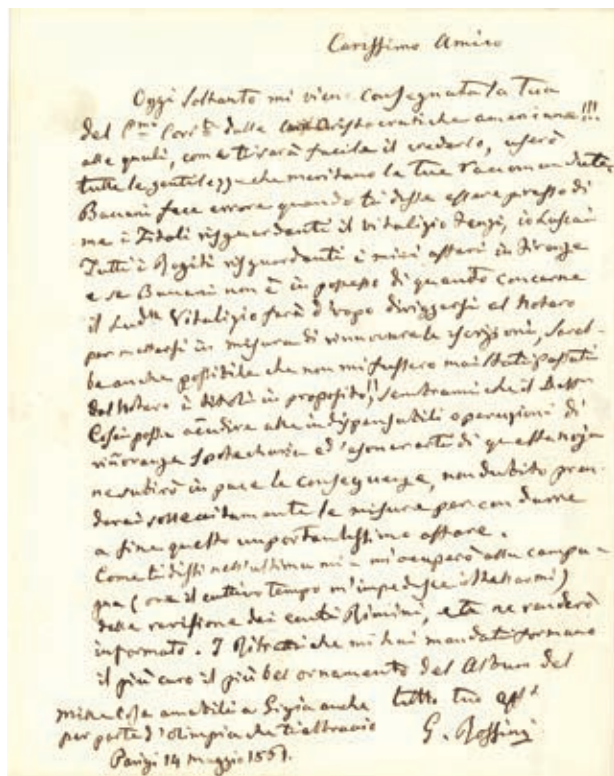 Carissimo Amico
Oggi soltanto mi vien consegnata la tua
del Cor.te dalle Aristocratiche americane!!!
alle quali, come ti sarà facile il crederlo, userò
tutte le gentilezze che meritano la tua raccomandata
fece errore quando ti disse essere presso di
me i Titoli risguardanti il Vitalizio Fenzi, io lasciai
Tutti i Rogiti risguardanti i miei affari in Firenze
e se non è in possesso di quanto concerne
il Vitalizio farà d'uopo diriggersi al Notaro
per mettersi in misura di rinnovare le iscrizioni, sareb-
be anche possibile che non mi fussero mai stati passati
dal Notaro i titoli in proposito!! Sembrami che il
possa accudire alle indispensabili operazioni di
Ipotecaria ed esonerarti di questa noja
ne subirò in pace le conseguenze, non dubito pren-
derai sollecitamente le misure per condurre
a fine questo importantissimo affare.
Come ti dissi nell'ultima mia mi occuperò alla campa-
gna (ove il cattivo tempo m'impedisce)
della revisione dei conti Rimini, e te ne renderò
informato. I Ritratti che mi hai mandati formano
il più caro il più bel ornamento del Album del
mille cose amabili a Gigia anche tutto tuo aff.o
per parte d'Olimpia che ti abbraccio G. Rossini
Parigi 14 Maggio 1861.